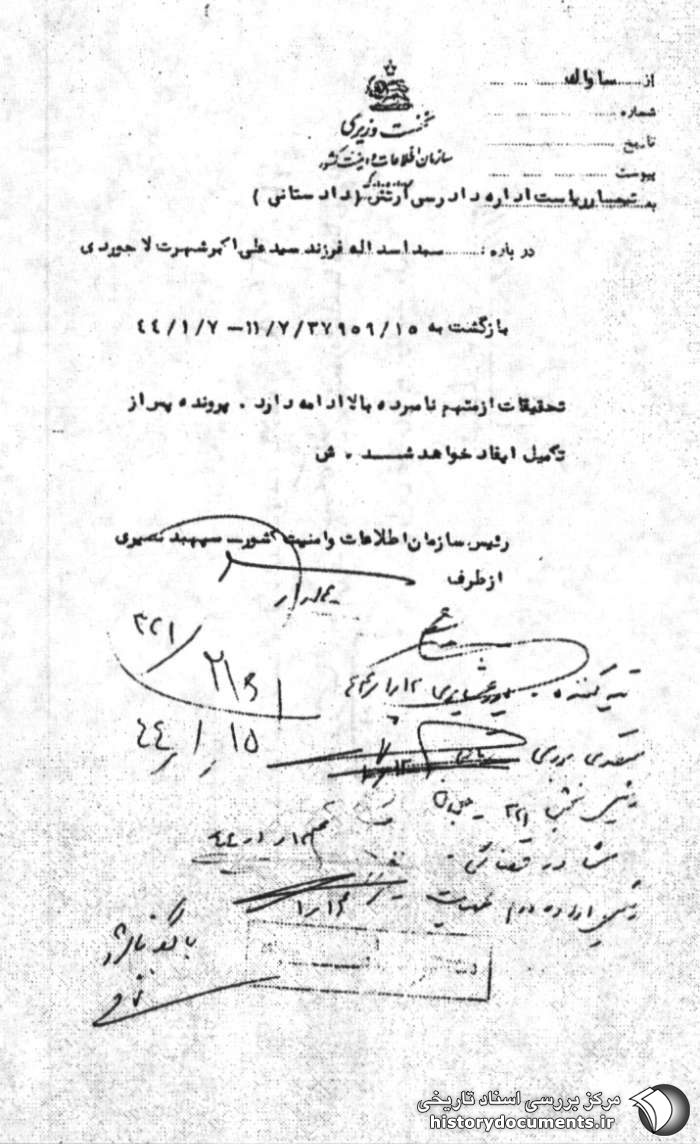 از ساواک
شماره
تاریخ
پیوست
نخست وزیری
سازمان اطلاعات و امنیت کشور
به تیمسار ریاست اداره دادرسی ارتش (دادستانی)
درباره: سید اسداله فرزند سیدعلی اکبر شهرت لاجوردی
بازگشت به ۱۵/۳۷۹۵۹/۷/۱۱-۴۴/۱/۷
تحقیقات از متهم نامبرده بالا ادامه دارد. پرونده پس از
تکمیل ایفاد خواهد شد. ش
رئیس سازمان اطلاعات و امنیت کشور- سپهبد نصیری
از طرف
۳۲۱/
۴۴/۱/۱۵
تهیه کننده
متصدی بررسی
رئیس بخش ۳۲۱
رئیس اداره دوم عملیات
بایگانی شود
مرکز بررسی اسناد تاریخی
historydocuments.ir